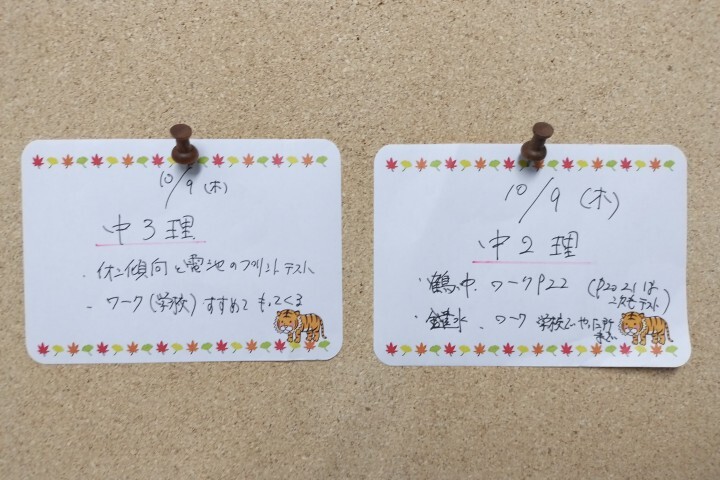 10/9 (木)
中3理
・イオン傾向と電池のプリントテスト
- ワーク(学校)すすめてもってくる
10/9 (木)
中2理
・鶴中、ワークP22 (P20 21は
次もテスト)
・鑓水、ワーク 学校でやった所
まで